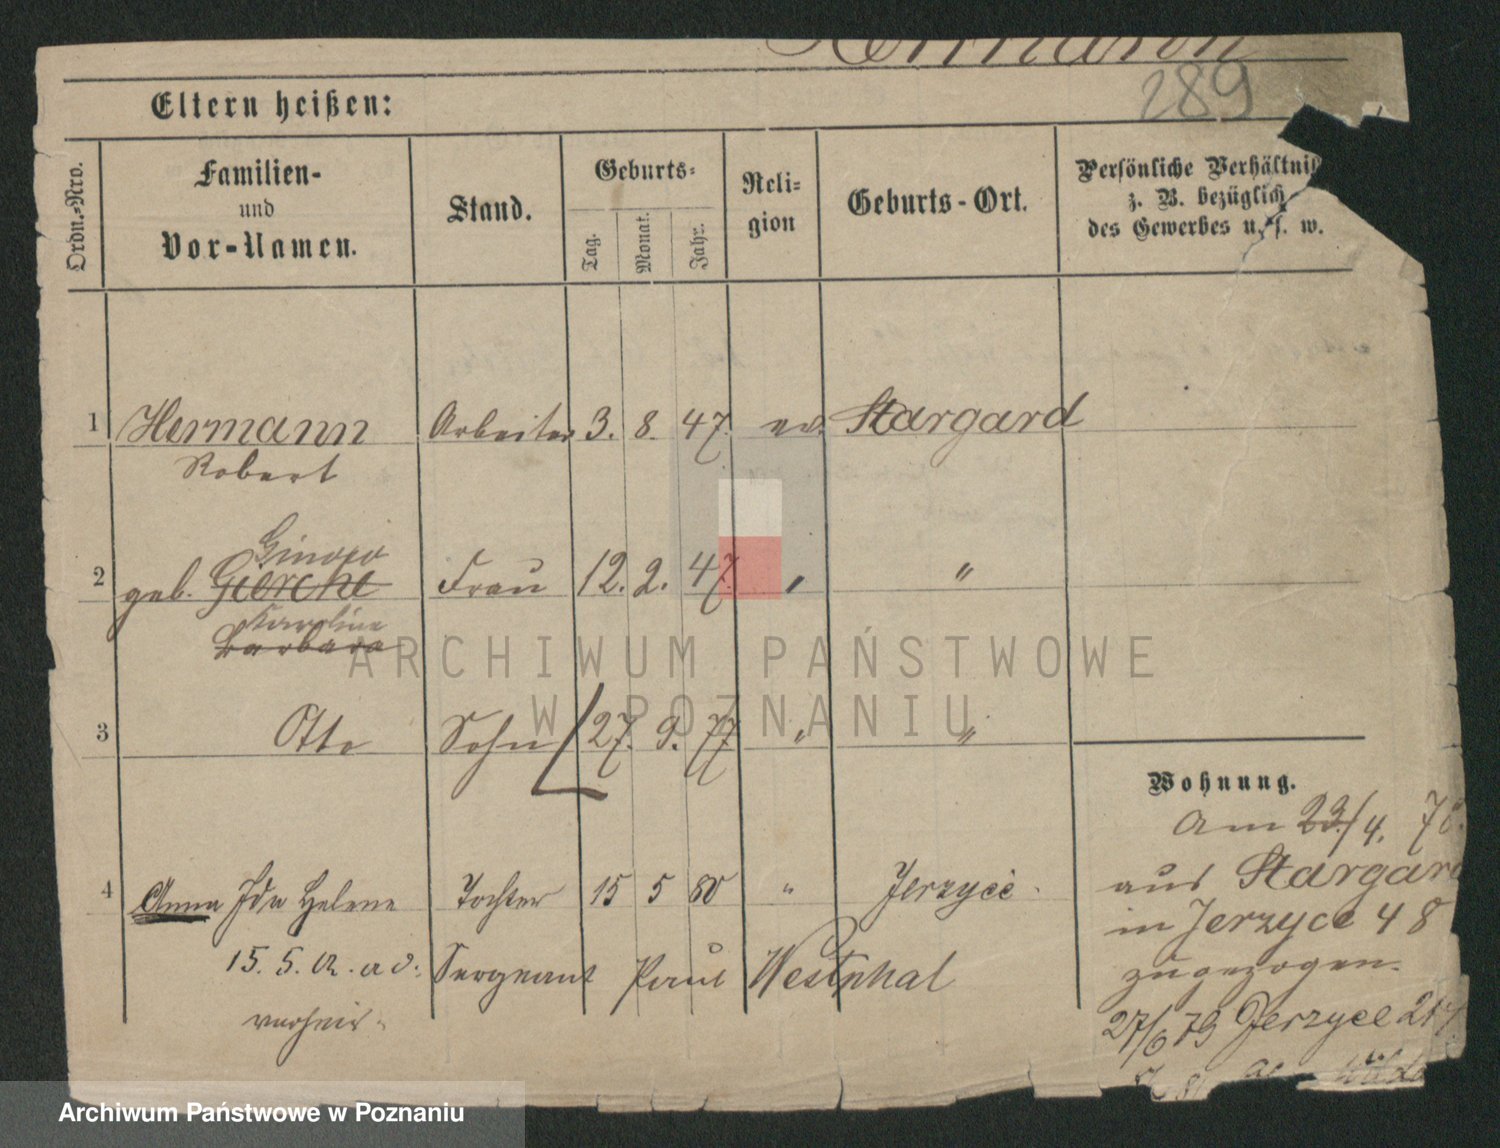 Hermann
289
Eltern heißen:
Ordn.-Nro.
Familien-
und
Vor-Namen.
Stand.
Geburts-
Tag.
Monat.
Jahr.
Reli-
gion
Geburts-Ort.
Persönliche Verhältnis
z. B. bezüglich
des Gewerbes u. s. w.
1 Hermann Arbeiter 3. 8. 47. ev. Stargard
Robert
2 geb. Gierche Frau 12. 2. 47. " "
Karoline
Barbara
3 Otto Sohn 27. 9. 77 " "
Wohnung.
Am 23/4. 78.
aus Stargard
in Jerzyce 48
zugezogen.
27/6 79 Jerzyce 217
4 Anna Ida Helene Tochter 15 5 80 " Jerzyce
15. 5. 02. Sergeant Paul Westphal
verheir.
ARCHIWUM PAŃSTWOWE
W POZNANIU
Archiwum Państwowe w Poznaniu